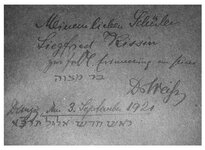 Meinem lieben Schüler
Siegfried Kessin
zur frdl. Erinnerung an seine
בר מצוה
Dr Weiß
Danzig, den 3. September 1921
ראש חדש אלול תרפ״א